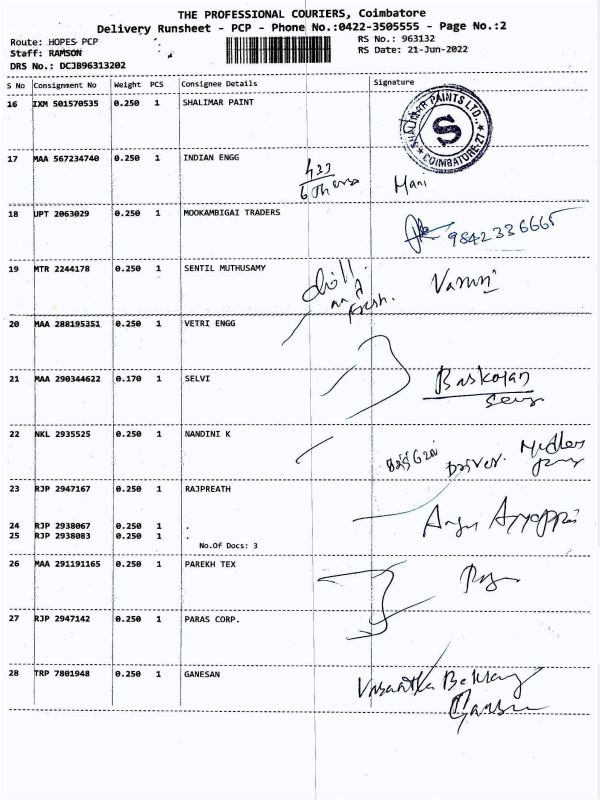 THE PROFESSIONAL COURIERS, Coimbatore
Delivery Runsheet - PCP - Phone No.:0422-3505555 - Page No.:2
Route: HOPES PCP RS No.: 963132
Staff: RAMSON RS Date: 21-Jun-2022
DRS No.: DCJB96313202
S No Consignment No Weight PCS Consignee Details Signature
16 IXM 501570535 0.250 1 SHALIMAR PAINT
SHALIMAR PAINTS LTD., S COIMBATORE-27
17 MAA 567234740 0.250 1 INDIAN ENGG
Mani
18 UPT 2063029 0.250 1 MOOKAMBIGAI TRADERS
9842336665
19 MTR 2244178 0.250 1 SENTIL MUTHUSAMY
20 MAA 288195351 0.250 1 VETRI ENGG
21 MAA 290344622 0.170 1 SELVI
Baskoran
22 NKL 2935525 0.250 1 NANDINI K
23 RJP 2947167 0.250 1 RAJPREATH
24 RJP 2938067 0.250 1 .
25 RJP 2938083 0.250 1 .
No.Of Docs: 3
26 MAA 291191165 0.250 1 PAREKH TEX
27 RJP 2947142 0.250 1 PARAS CORP.
28 TRP 7801948 0.250 1 GANESAN